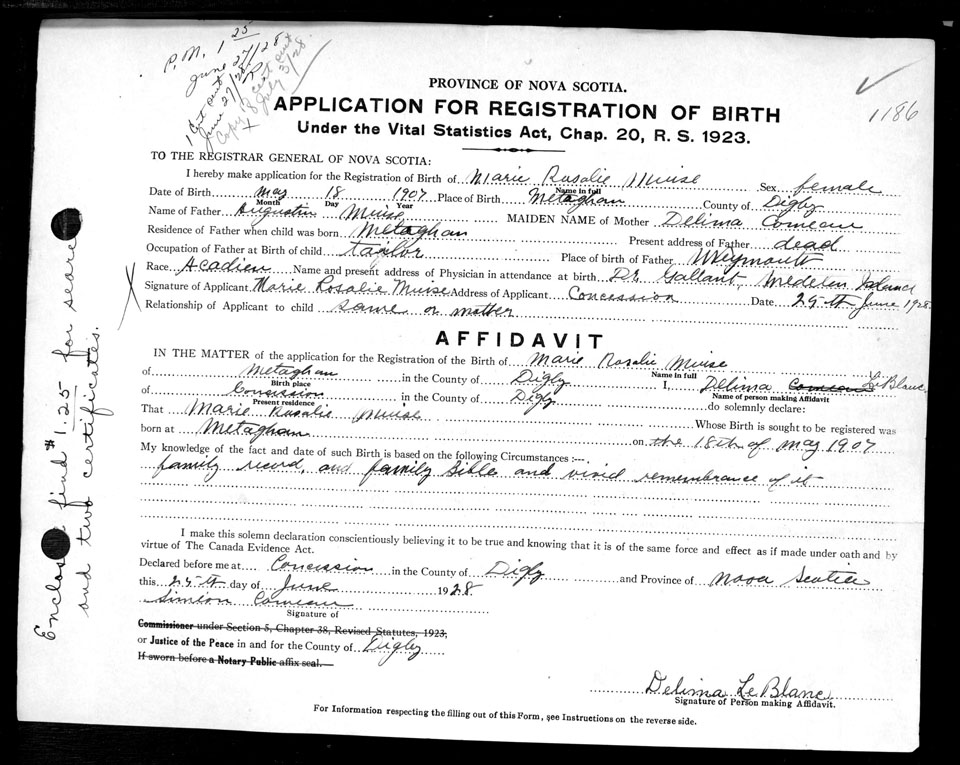 P.M. 1 25
June 27/28
1 Cert sent
June 27/28
Copy & cert sent
July 3/28
1186
PROVINCE OF NOVA SCOTIA.
APPLICATION FOR REGISTRATION OF BIRTH
Under the Vital Statistics Act, Chap. 20, R. S. 1923.
TO THE REGISTRAR GENERAL OF NOVA SCOTIA:
I hereby make application for the Registration of Birth of Marie Rosalie Muise Sex female
Name in full
Date of Birth May 18 1907 Place of Birth Metaghan County of Digby
Month Day Year
Name of Father Augustin Muise MAIDEN NAME of Mother Delima Comeau
Residence of Father when child was born Metaghan Present address of Father dead
Occupation of Father at Birth of child tailor Place of birth of Father Weymouth
Race Acadien Name and present address of Physician in attendance at birth Dr Gallant,
Signature of Applicant Marie Rosalie Muise Address of Applicant Concession Date 25th June 1928
Relationship of Applicant to child same or mother
AFFIDAVIT
IN THE MATTER of the application for the Registration of the Birth of Marie Rosalie Muise
Name in full
of Metaghan in the County of Digby I, Delima Comeau LeBlanc
Birth place
Name of person making Affidavit
of Concession in the County of Digby do solemnly declare:
Present residence
That Marie Rosalie Muise Whose Birth is sought to be registered was
born at Metaghan on the 18th of May 1907
My knowledge of the fact and date of such Birth is based on the following Circumstances :—
family record, and family Bible and vivid remembrance of it
I make this solemn declaration conscientiously believing it to be true and knowing that it is of the same force and effect as if made under oath and by
virtue of The Canada Evidence Act.
Declared before me at Concession in the County of Digby and Province of Nova Scotia
this 25th day of June 1928
Simeon Comeau
Signature of
Commissioner under Section 5, Chapter 38, Revised Statutes, 1923,
or Justice of the Peace in and for the County of Digby
If sworn before a Notary Public affix seal.
Delima LeBlanc
Signature of Person making Affidavit.
For Information respecting the filling out of this Form, see Instructions on the reverse side.
Enclose find $1.25 for search
and two certificates.